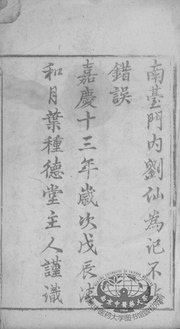 南臺門內劉仙為記不
錯誤
嘉慶十三年歲次戊辰清
和月葉種德堂主人謹識